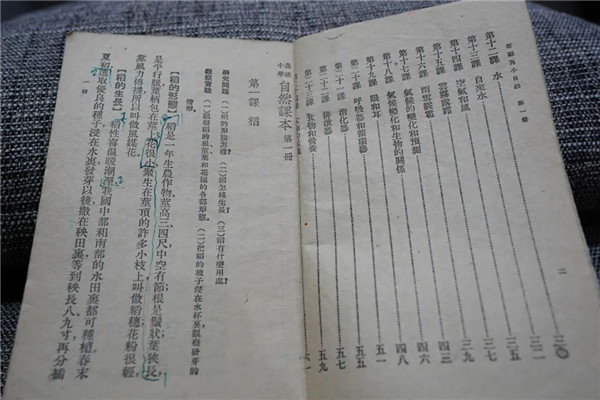 二
第十二課 水 三〇
第十三課 自來水 三二
第十四課 空氣和風 三五
第十五課 雲霧露霜 三七
第十六課 雨雪霰雹 三九
第十七課 氣候變化和預測 四三
第十八課 氣候變化和生物的關係 四六
第十九課 眼和耳 四八
第二十課 呼吸器和循環器 五一
第二十一課 消化器 五七
第二十二課 排泄器 五九
第二十三課 食物和營養 六一
高級小學 自然課本 第一冊
第一課 稻
研究問題 (一)稻的形態怎樣? (二)稻怎樣生長? (三)稻有什麼用處?
觀察實驗 (一)觀察稻的根莖葉和花穗的各部形態。 (二)把稻的種子浸在水杯裏觀察發芽的
情形。
【稻的形態】 稻是一年生農作物,莖高三、四尺,中空有節;根是鬚狀;葉狹長,
是平行脈,葉柄包在莖上;花很小,聚生在莖頂的許多小枝上,叫做稻穗;花粉很輕,
靠風力傳播,所以叫做風媒花。
【稻的生長】 稻性喜溫暖潮溼,我國中部和南部的水田裏都可種植。春末
夏初,選取優良的種子,浸在水裏,發芽以後,撒在秧田裏,等到秧長八、九寸,再分插
一